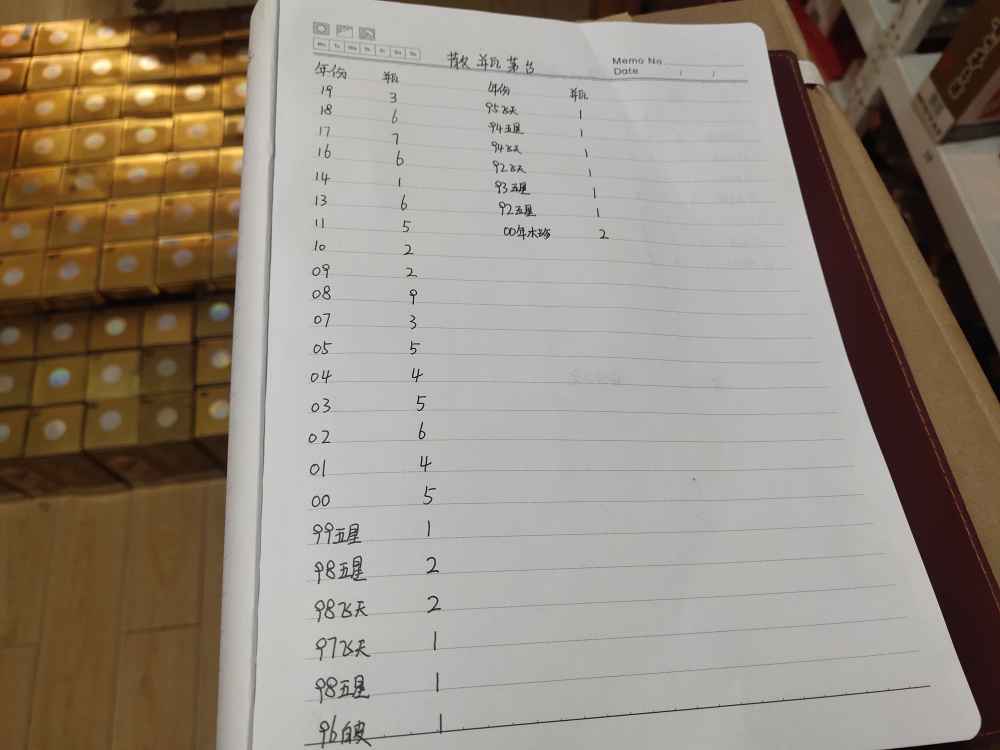 Memo No.
Date / /
Mo Tu We Th Fr Sa Su
茅台
年份
19 3
18 6
17 7
16 6
14 1
13 6
11 5
10 2
09 2
08 9
07 3
05 5
04 4
03 5
02 6
01 4
00 5
99五星 1
98五星 2
98飞天 2
97飞天 1
98五星 1
96白皮 1
年份
95飞天 1
94五星 1
94飞天 1
92飞天 1
93五星 1
92五星 1
00年水 2